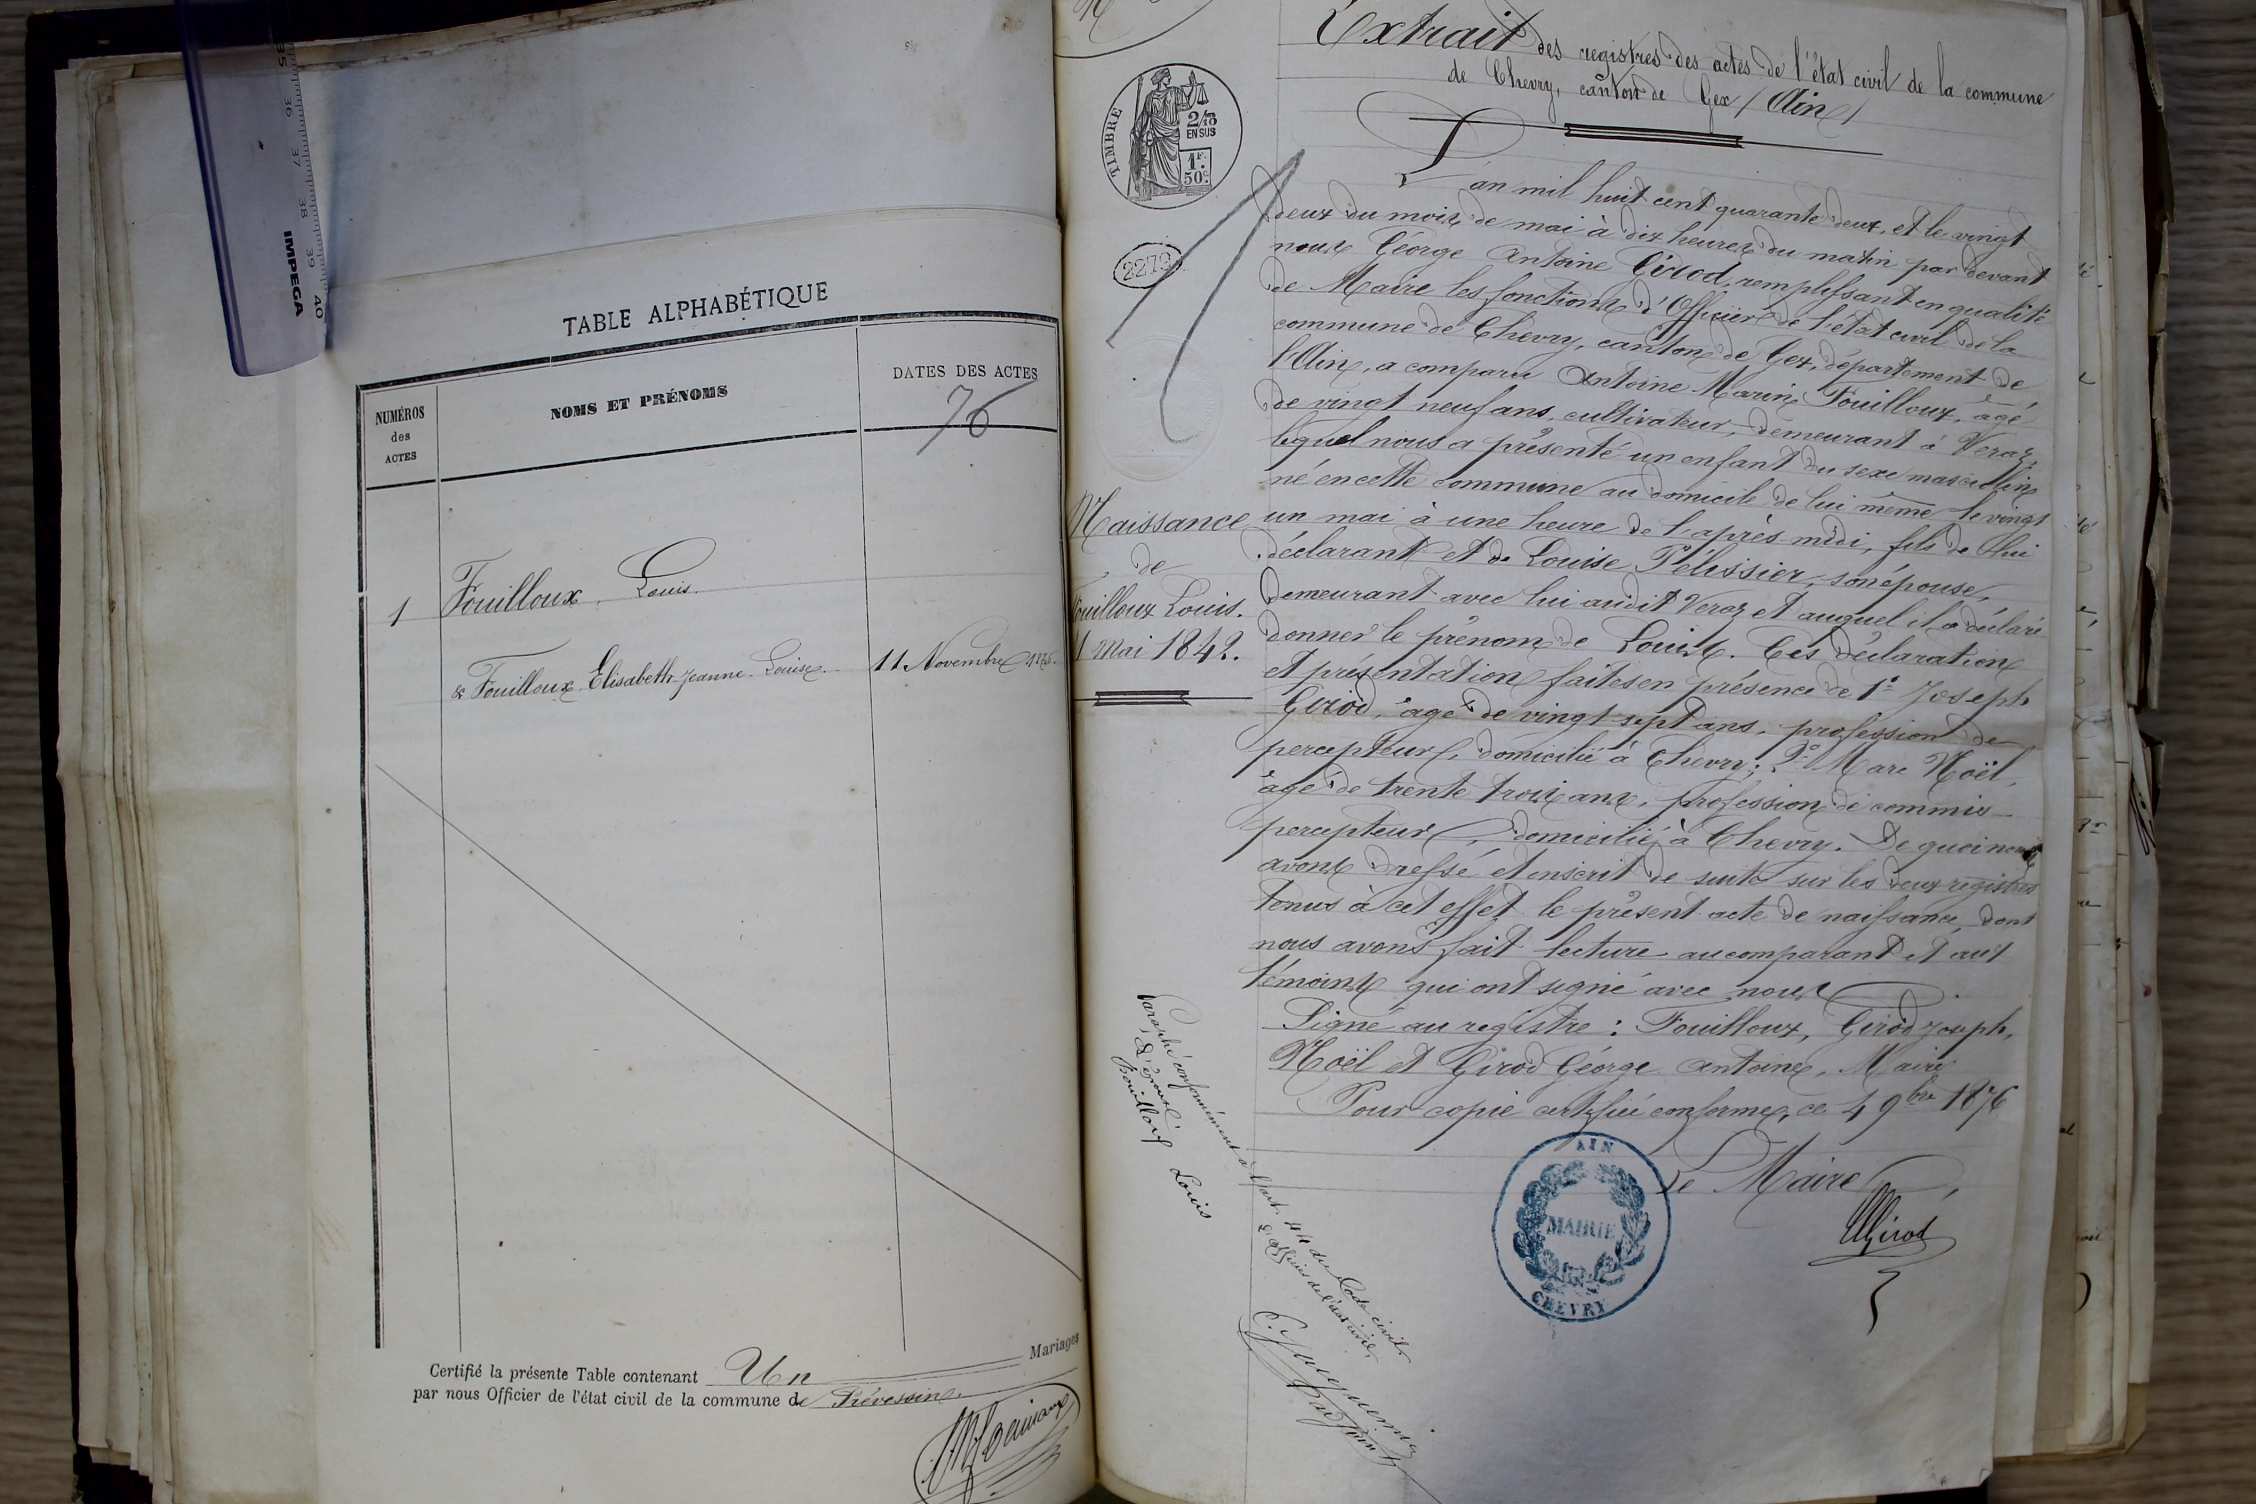 35 36 37 38 39 40
IMPEGA
TABLE ALPHABÉTIQUE
NUMÉROS
des
ACTES
NOMS ET PRÉNOMS
DATES DES ACTES
76
1 Fouilloux, Louis.
& Fouilloux Elisabeth-Jeanne-Louise. 11 Novembre 1876.
Certifié la présente Table contenant Un Mariages
par nous Officier de l'état civil de la commune de Prévessin.
Extrait des registres des actes de l'état civil de la commune
de Chevry, canton de Gex (Ain)
TIMBRE
2/10
EN SUS
1F.
50c.
2279
L'an mil huit cent quarante deux, et le vingt
deux du mois de mai à dix heures du matin par devant
nous George Antoine Girod, remplissant en qualité
de Maire les fonctions d'Officier de l'état civil de la
commune de Chevry, canton de Gex, département de
l'Ain, a comparu Antoine Marin Fouilloux, âgé
de vingt neuf ans, cultivateur, demeurant à Veraz,
lequel nous a présenté un enfant du sexe masculin
né en cette commune au domicile de lui même le vingt
un mai à une heure de l'après midi, fils de lui
déclarant et de Louise Pélissier, son épouse,
demeurant avec lui audit Veraz et auquel il a déclaré
donner le prénom de Louis. Ces déclaration
et présentation faites en présence de 1° Joseph
Girod, âgé de vingt sept ans, profession de
percepteur, domicilié à Chevry; 2° Marc Noël,
âgé de trente trois ans, profession de commis
percepteur, domicilié à Chevry. De quoi nous
avons dressé et inscrit de suite sur les deux registres
tenus à cet effet le présent acte de naissance, dont
nous avons fait lecture au comparant et aux
témoins qui ont signé avec nous.
Signé au registre : Fouilloux, Girod Joseph,
Noël et Girod George Antoine, Maire
Pour copie certifiée conforme, ce 4 9bre 1876
Le Maire,
Girod
AIN
MAIRIE
CHEVRY
Naissance
de
Fouilloux Louis.
1 Mai 1842.
Paraphé conformément à l'art. 44 du Code civil,
L'époux, L'officier de l'état civil,
Fouilloux Louis